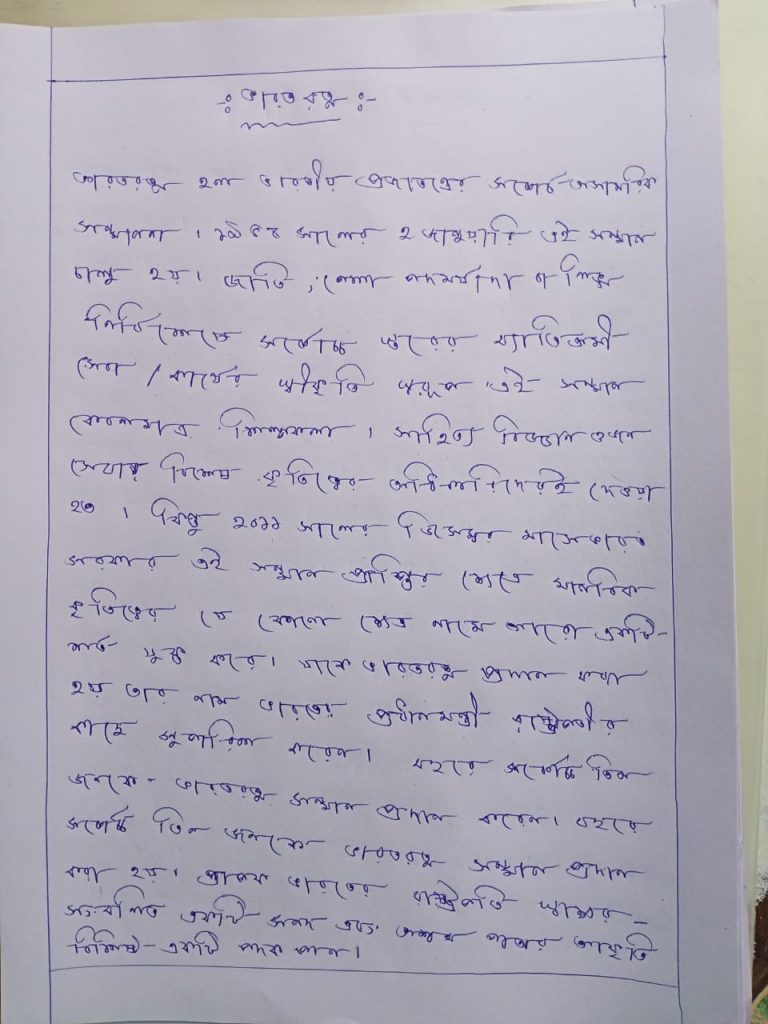 ঃ ভারত রত্ন ঃ-
ভারতরত্ন হল ভারতীয় প্রজাতন্ত্রের সর্বোচ্চ অসামরিক
সম্মাননা । ১৯৫৪ সালের ২ জানুয়ারি এই সম্মান
চালু হয়। জাতি, পেশা পদমর্যাদা বা লিঙ্গ
নির্বিশেষে সর্বোচ্চ স্তরের ব্যতিক্রমী
সেবা / কার্যের স্বীকৃতি স্বরূপ এই সম্মান
কেবলমাত্র শিল্পকলা । সাহিত্য বিজ্ঞান ও জন
সেবায় বিশেষ কৃতিত্বের অধিকারিদেরই দেওয়া
হত । কিন্তু ২০১১ সালের ডিসেম্বর মাসে ভারত
সরকার এই সম্মান প্রাপ্তির ক্ষেত্রে মানবিক
কৃতিত্বের যে কোনো ক্ষেত্র নামে আরো একটি-
শর্ত যুক্ত করে। যাকে ভারতরত্ন প্রদান করা
হয় তার নাম ভারতের প্রধানমন্ত্রী রাষ্ট্রপতির
কাছে সুপারিশ করেন। বছরে সর্বোচ্চ তিন
জনকে- ভারতরত্ন সম্মান প্রদান করেন। বছরে
সর্বোচ্চ তিন জনকে ভারতরত্ন সম্মান প্রদান
করা হয়। প্রাপক ভারতের রাষ্ট্রপতি স্বাক্ষর-
সংবলিত একটি সনদ এবং অশ্বত্থ পাতার আকৃতি
বিশিষ্ট- একটি পদক পান।